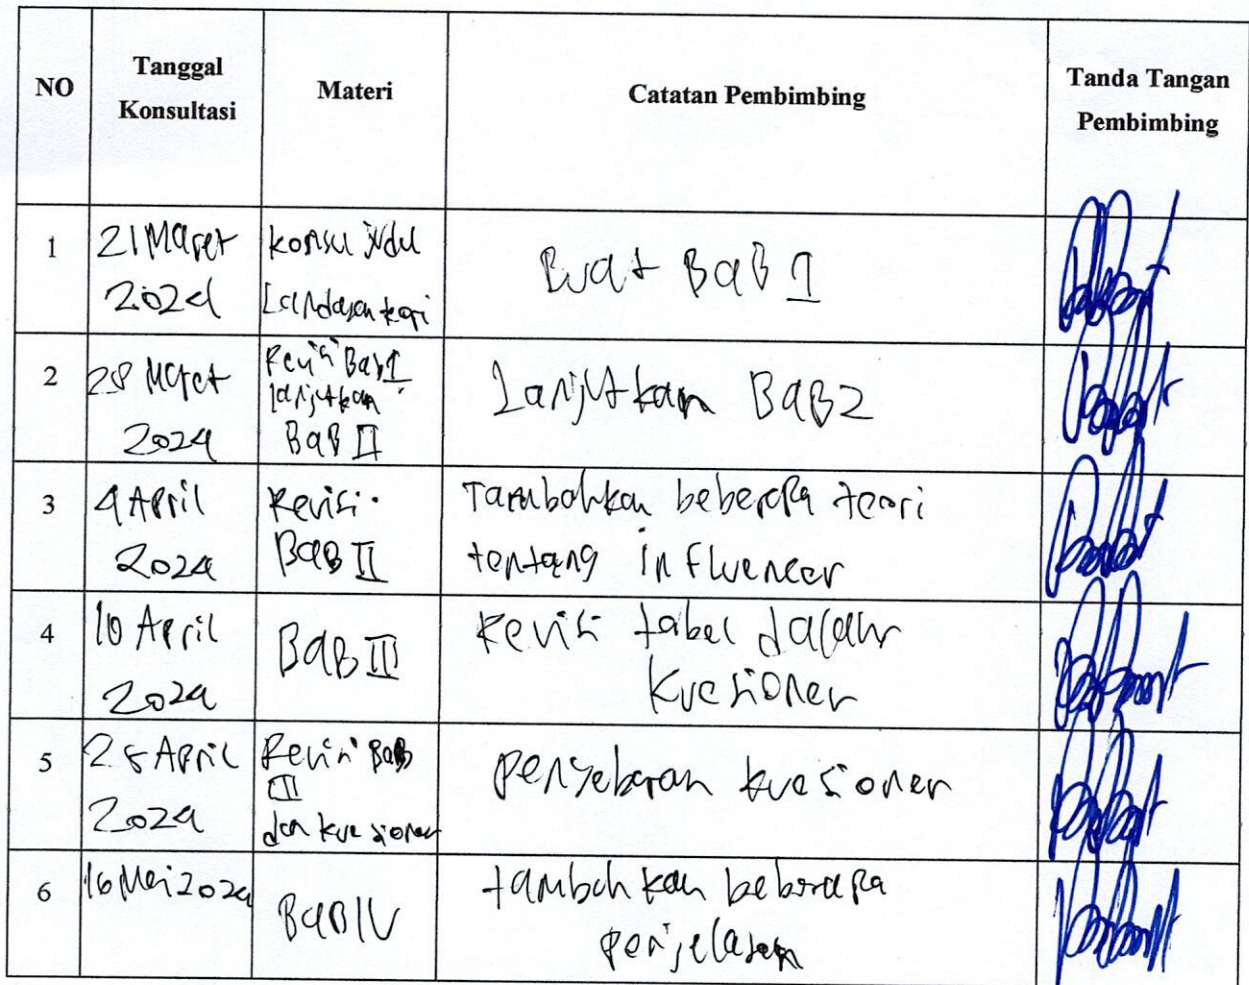 NO
Tanggal
Konsultasi
Materi
Catatan Pembimbing
Tanda Tangan
Pembimbing
1
21 Maret
2024
Konsul Judul
Landasan teori
Buat BAB I
2
28 Maret
2024
Revisi Bab I
lanjutkan
BAB II
Lanjutkan BAB 2
3
4 April
2024
Revisi
BAB II
Tambahkan beberapa teori
tentang influencer
4
April
2024
BAB III
Revisi tabel dalam
kuesioner
5
25 April
2024
Revisi BAB
III
dan kuesioner
penyebaran kuesioner
6
16 Mei 2024
BAB IV
tambahkan beberapa
penjelasan